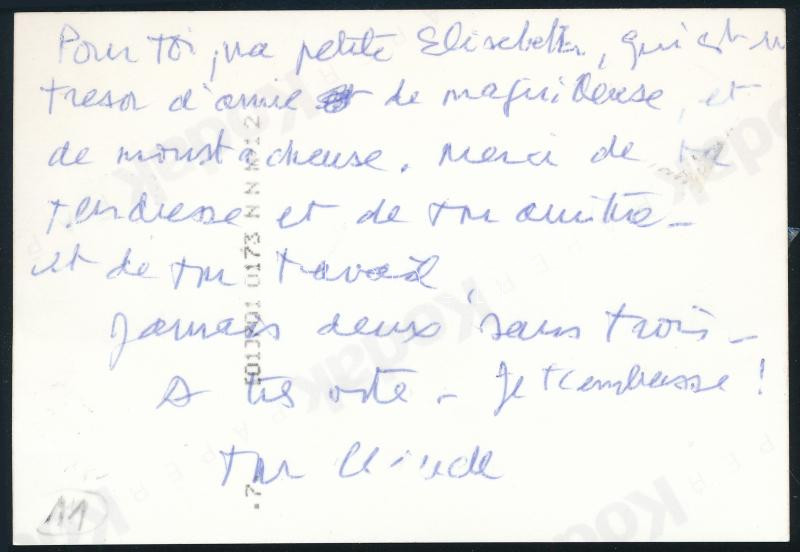 Pour toi, ma petite Elisabeth, qui est un
tresor d'amie de maquilleuse, et
de moustacheuse. Merci de ta
tendresse et de ton amitié -
et de ton travail
Jamais deux sans trois -
A très vite - Je t'embrasse !
ton Claude
11
Kodak